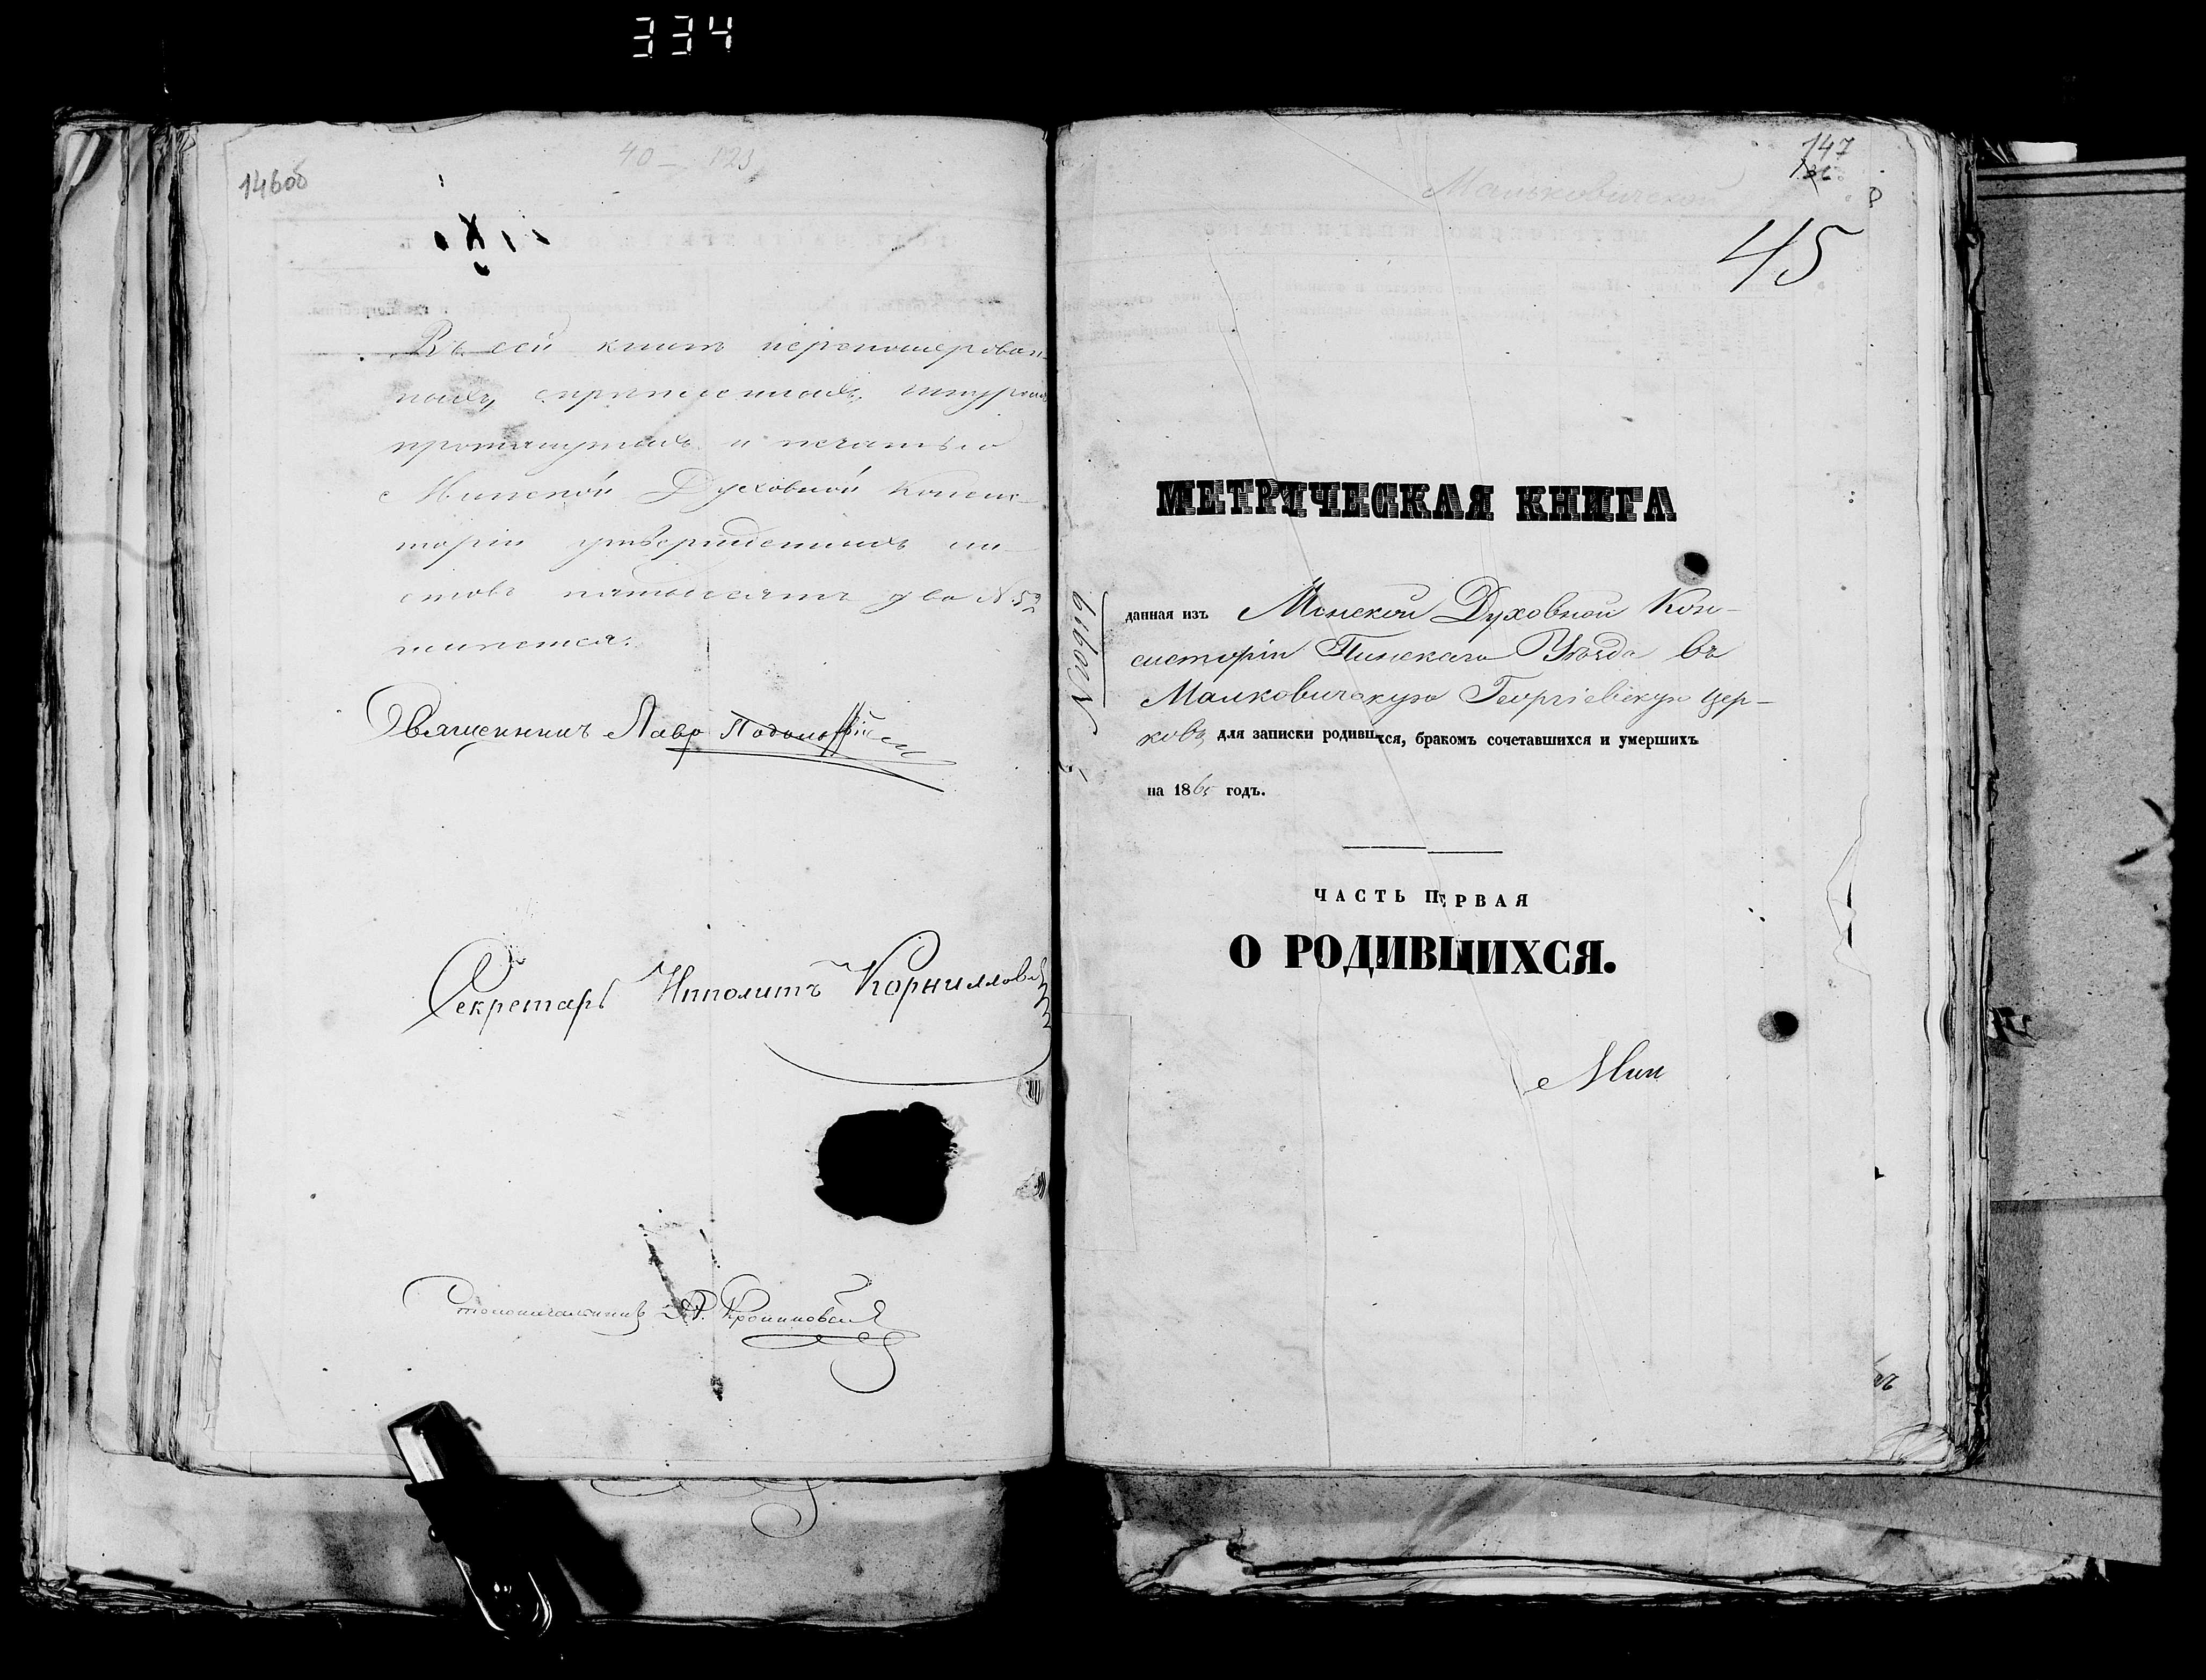 334
146об
40 — 123
Въ сей книгѣ перенумерован-
ныхъ, скрѣпленныхъ, шнуромъ
протянутыхъ и печатью
Минской Духовной Консис-
торіи утвержденныхъ ли-
стовъ пятьдесятъ два N. 52
числится.
Священникъ Лавр
Секретарь Ипполитъ Корниллов
Столоначальникъ
147
Мальковичской
45
МЕТРИЧЕСКАЯ КНИГА
N 10919
данная изъ Минской Духовной Кон-
систоріи Пинскаго Уѣзда въ
Малковичскую Георгіевскую Цер-
ковь для записки родившихся, бракомъ сочетавшихся и умершихъ
на 1865 годъ.
ЧАСТЬ ПЕРВАЯ
О РОДИВШИХСЯ.
Мин